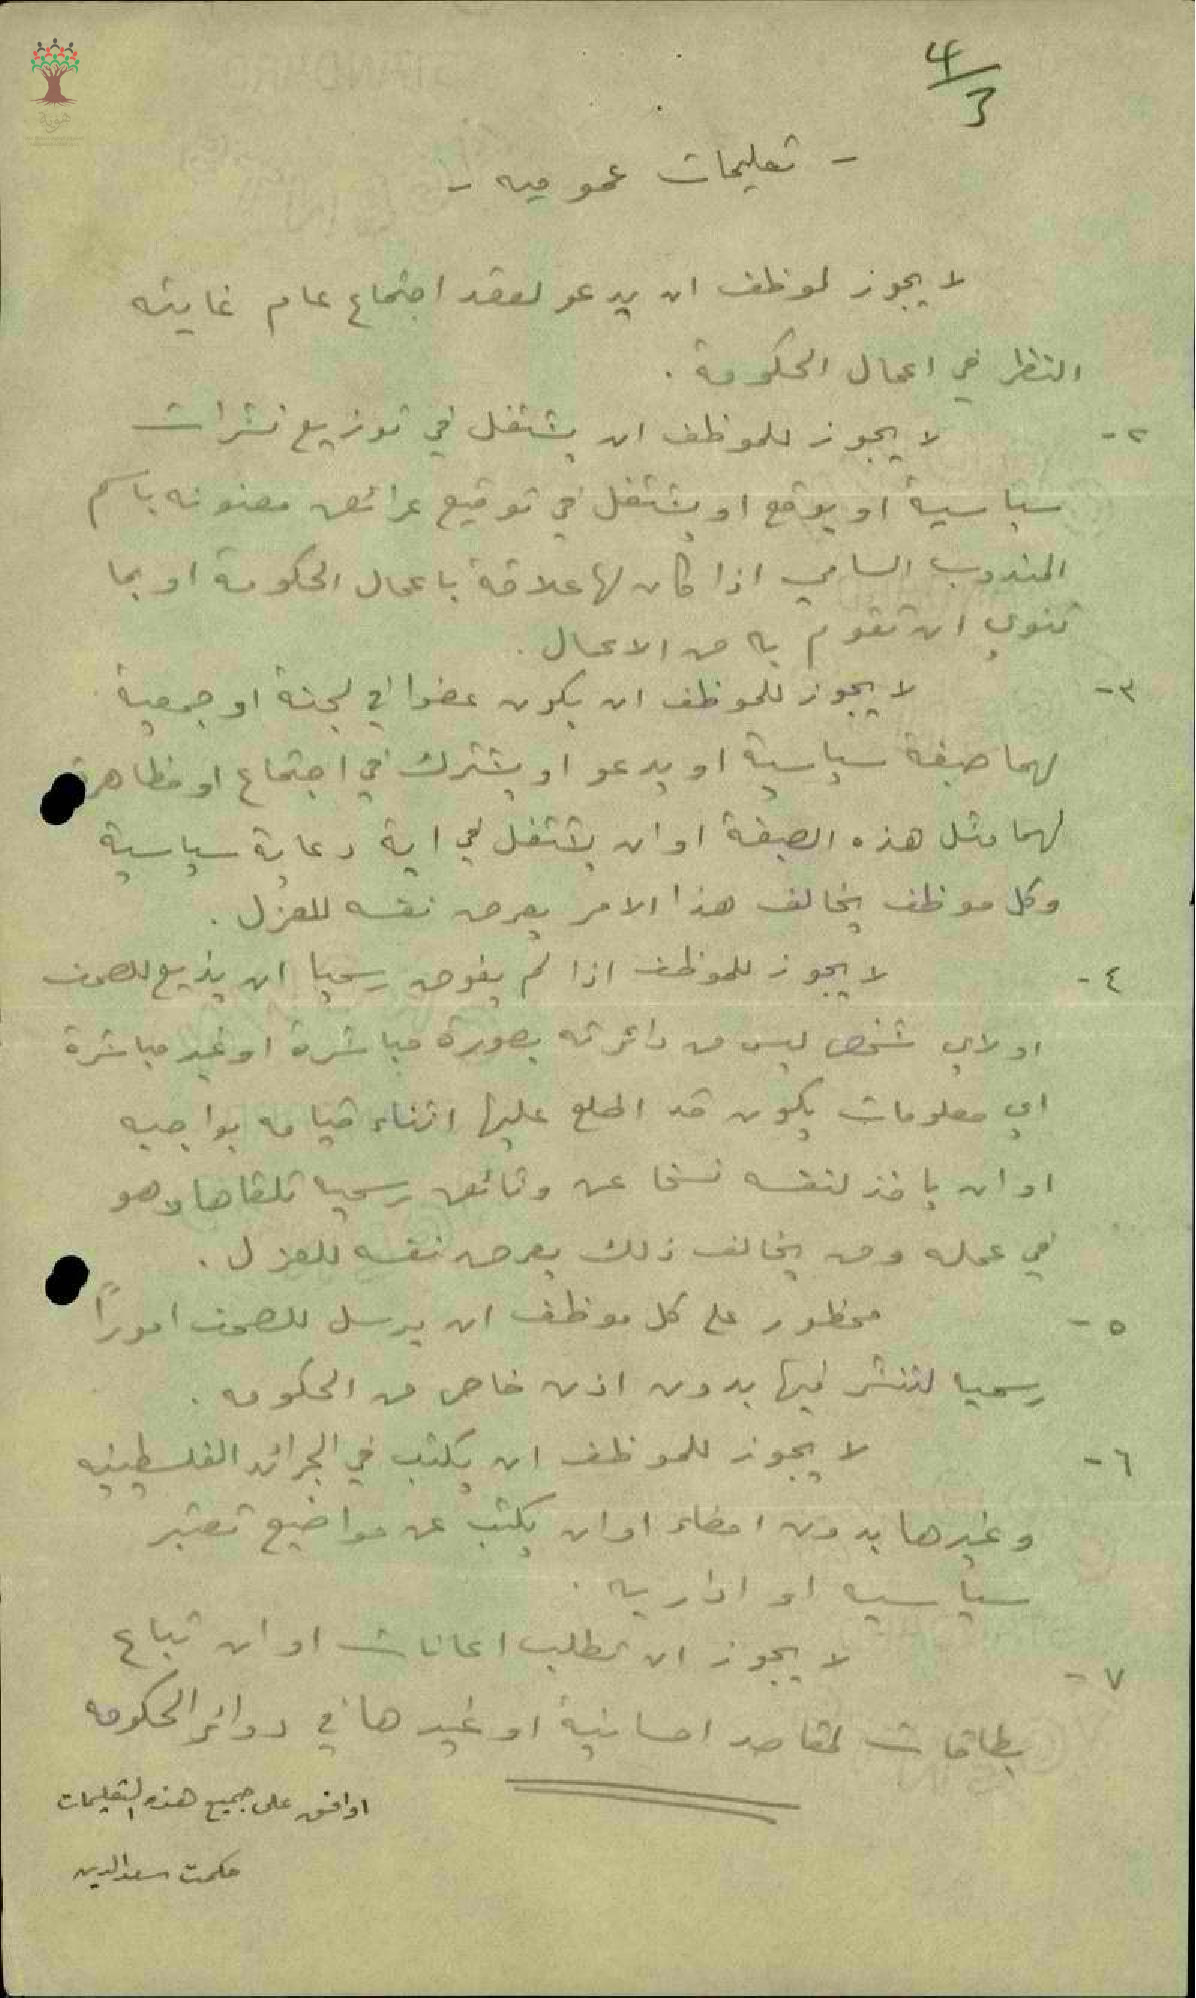 4/3
- تعليمات عموميه -
لا يجوز لموظف ان يدعو لعقد اجتماع عام غايته
النظر في اعمال الحكومة .
٢- لا يجوز للموظف ان يشتغل في توزيع نشرات
سياسية او يوقع او يشتغل في توقيع عرائض معنونه باسم
المندوب السامي اذا كان لها علاقة باعمال الحكومة او بما
تنوي ان تقوم به من الاعمال .
٣- لا يجوز للموظف ان يكون عضوا في لجنة او جمعية
لهما صبغة سياسية او يدعو او يشترك في اجتماع او مظاهرة
لهما مثل هذه الصبغة او ان يشتغل في اية دعاية سياسية
وكل موظف يخالف هذا الامر يعرض نفسه للعزل .
٤- لا يجوز للموظف اذا لم يفوض رسميا ان يذيع للصحف
او لاي شخص ليس من دائرته بصورة مباشرة او غير مباشرة
اي معلومات يكون قد اطلع عليها اثناء قيامه بواجبه
او ان ياخذ لنفسه نسخا عن وثائق رسميه تلقاها وهو
في عمله ومن يخالف ذلك يعرض نفسه للعزل .
٥- محظور على كل موظف ان يرسل للصحف امورًا
رسميه لتنشر فيها بدون اذن خاص من الحكومه .
٦- لا يجوز للموظف ان يكتب في الجرائد الفلسطينيه
وغيرها بدون امضاء او ان يكتب عن مواضيع تعتبر
سياسيه او اداريه .
٧- لا يجوز ان تطلب اعانات او ان تباع
بطاقات لمقاصد احسانية او غيرها في دوائر الحكومه
اوافق على جميع هذه التعليمات
حكمت سعد الدين
هوية